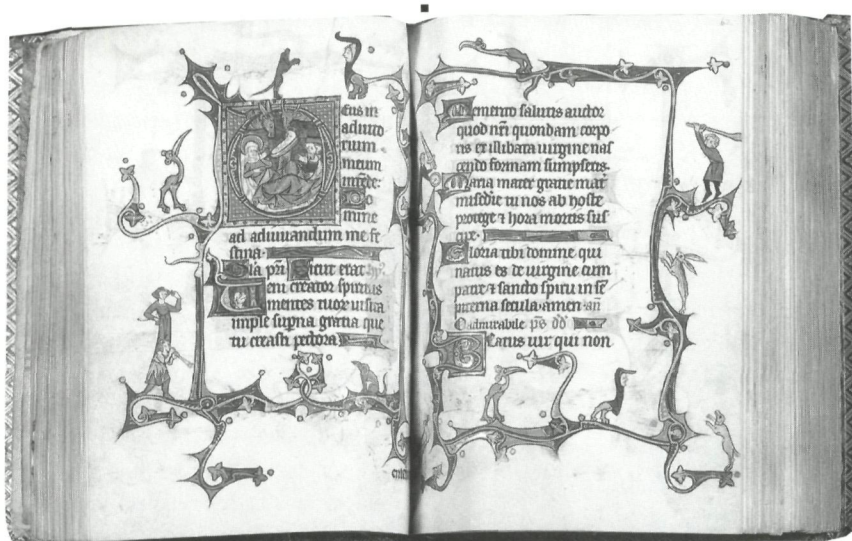 eus in
adiuto
rium
meum
intende:
Do
mine
ad adiuuandum me fe
stina.
Gla pri. Sicut erat. hy.
Ueni creator spiritus
mentes tuor uisita
imple superna gratia que
tu creasti pectora
Memento salutis auctor
quod nri quondam corpo
ris ex illibata uirgine nas
cendo formam sumpseris.
Maria mater gratie mat
misedie tu nos ab hoste
protege & hora mortis sus
cipe.
Gloria tibi domine qui
natus es de uirgine cum
patre & sancto spiritu in se
piterna secula. amen. an
O admirabile. ps dd
Beatus uir qui non